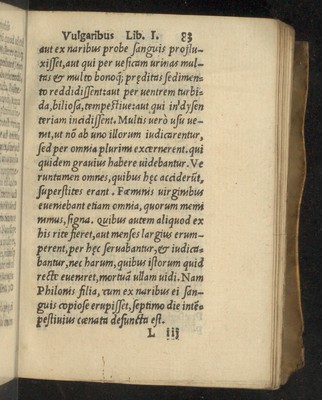 Vulgaribus Lib. I. 83
aut ex naribus probe sanguis proflu-
xisset, aut qui per uesicam urinas mul-
tas & multo bonoq; pręditas sedimen-
to reddidissent: aut per uentrem turbi-
da, biliosa, tempestiue: aut qui in dysen
teriam incidissent. Multis uerò usu ue-
nit, ut nõ ab uno illorum iudicarentur,
sed per omnia plurimi excernerent. qui
quidem grauius habere uidebantur. Ve
runtamen omnes, quibus hęc acciderũt,
superstites erant. Fœminis uirginibus
eueniebant etiam omnia, quorum memi
nimus, signa. Quibus autem aliquod ex
his rite fieret, aut menses largius erum-
perent, per hęc seruabantur, & iudica-
bantur, nec harum, quibus istorum quid
rectè eueniret, mortuã ullam uidi. Nam
Philonis filia, cum ex naribus ei san-
guis copiose erupisset, septimo die intẽ
pestiuius cœnata defuncta est.
L iij